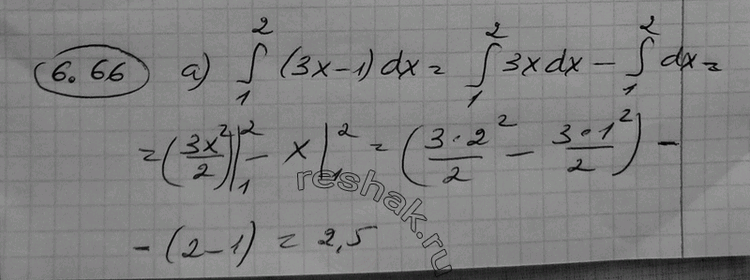 6.66 а) ∫₁² (3x−1) dx = ∫₁² 3x dx − ∫₁² dx =
= (3x²/2)|₁² − x|₁² = (3·2²/2 − 3·1²/2) −
− (2−1) = 2,5
reshak.ru